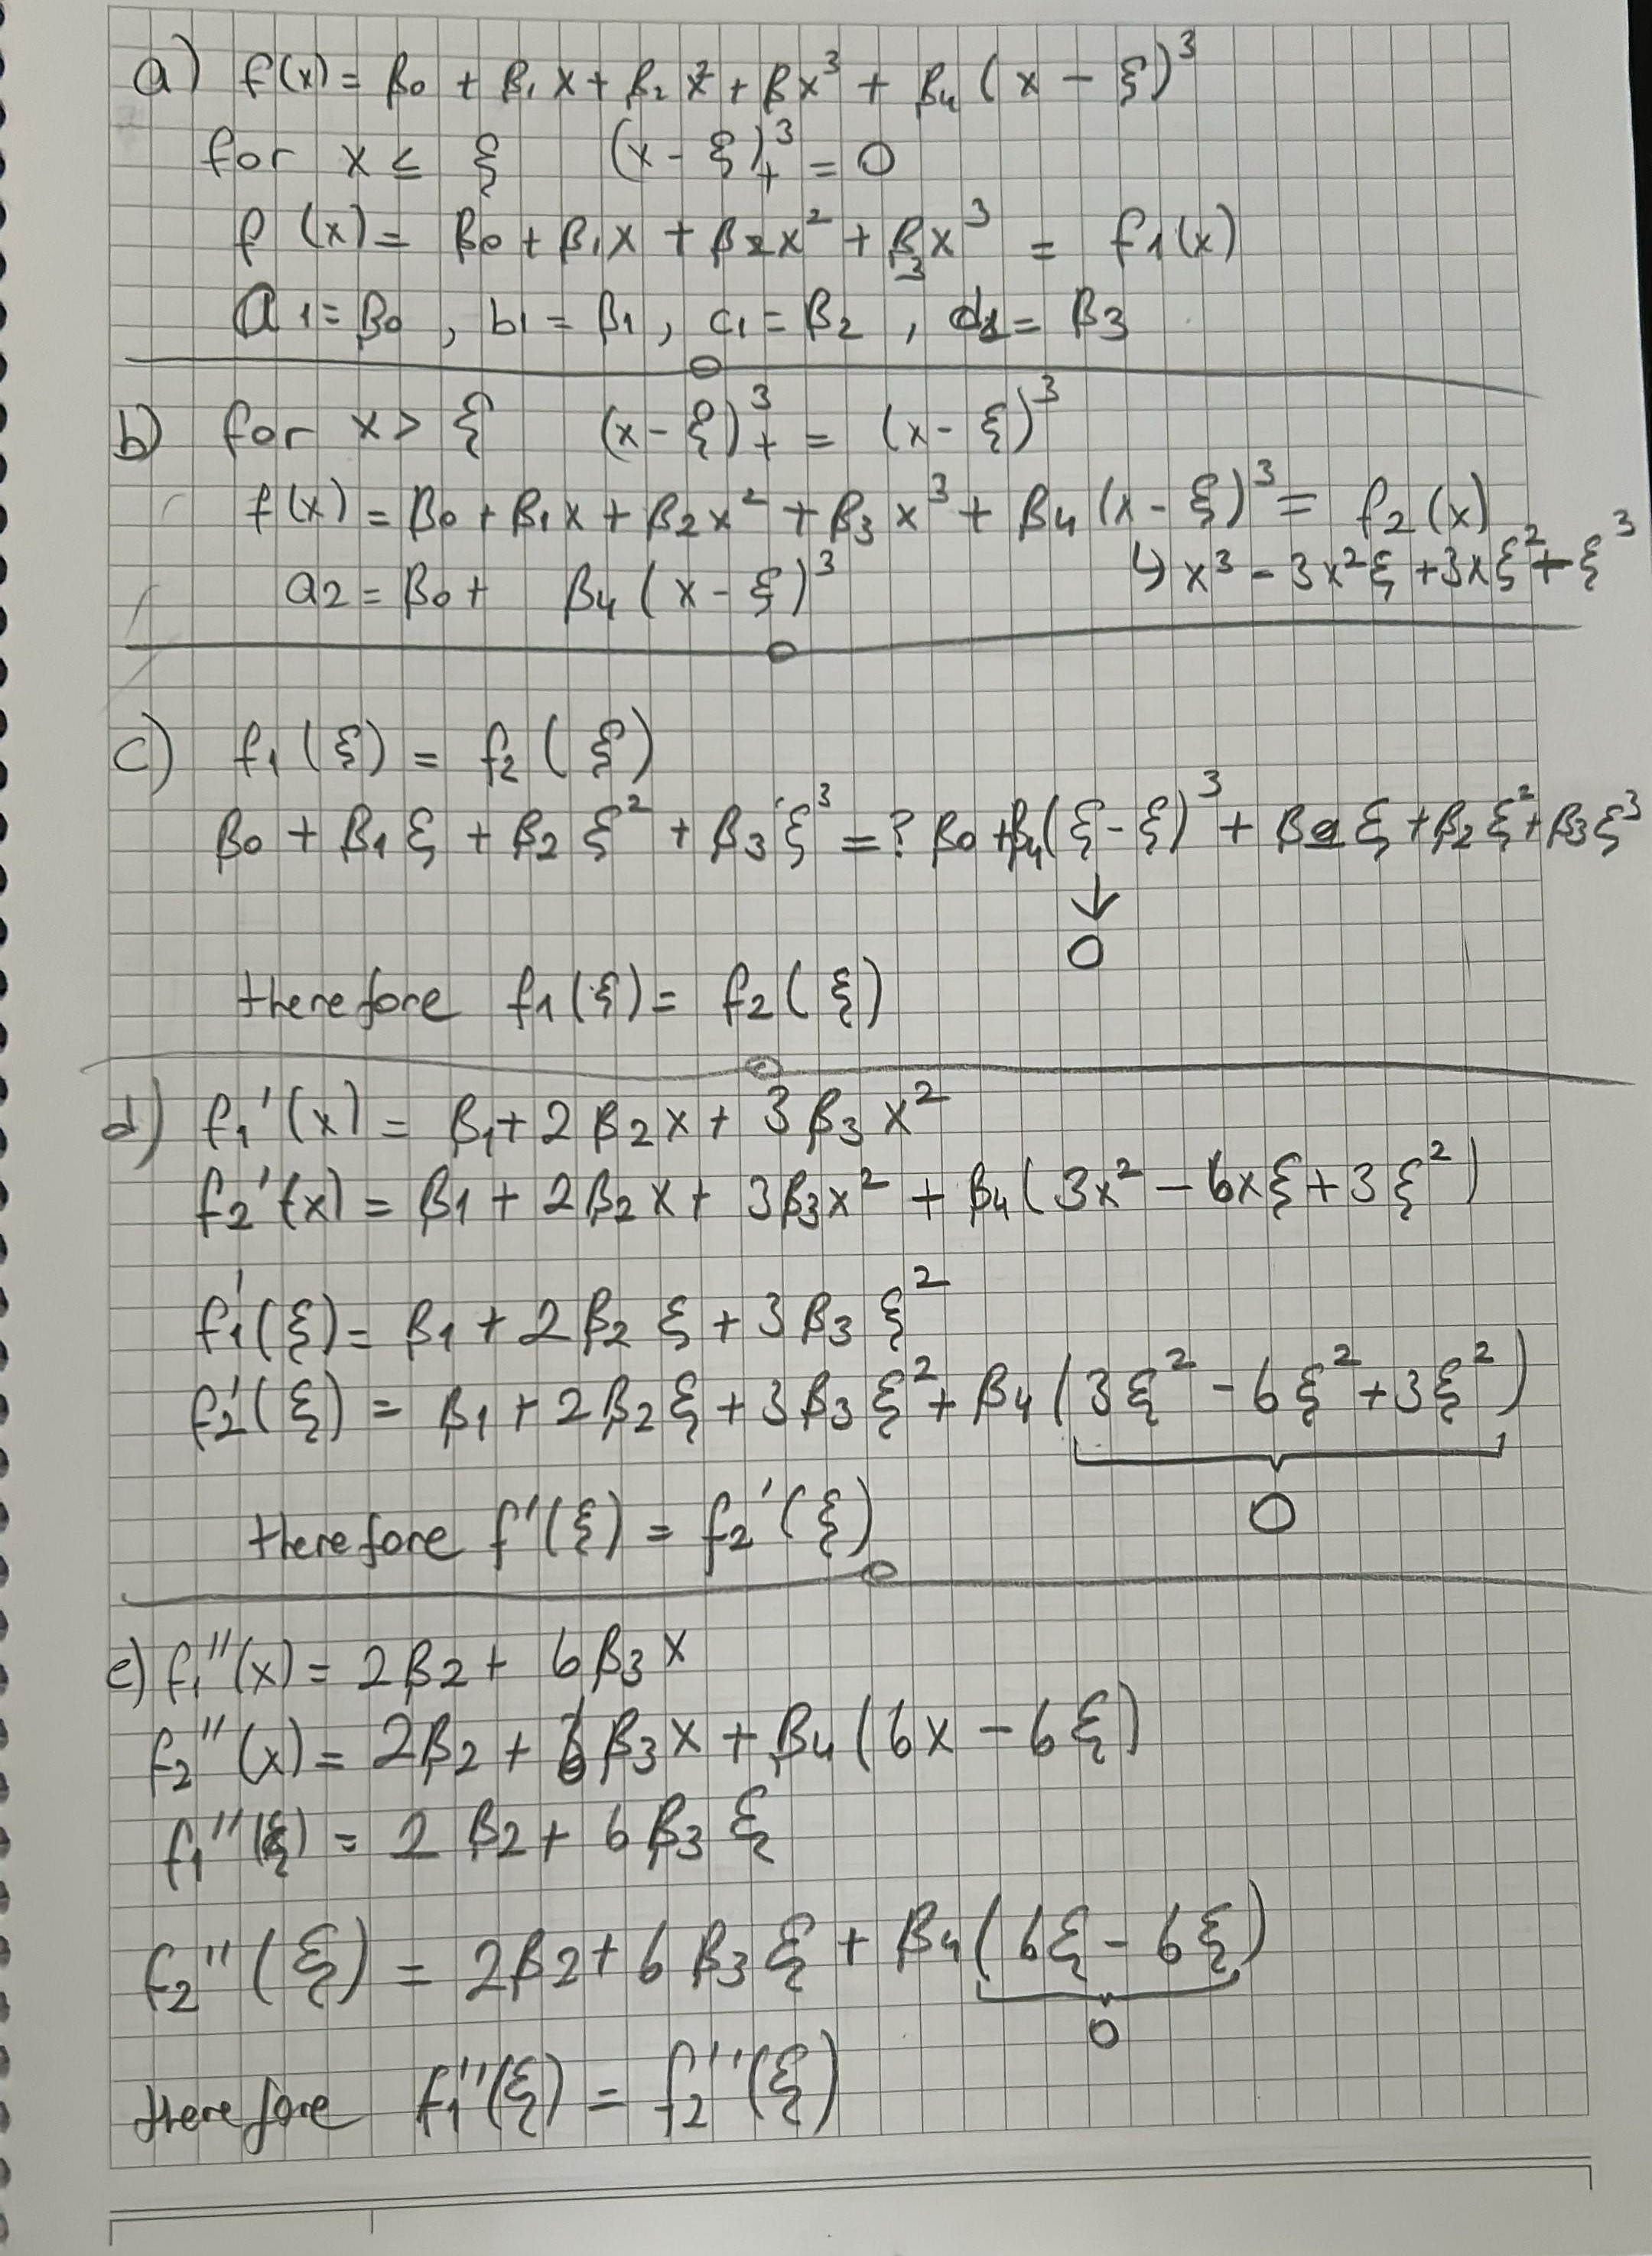 a) f(x) = β₀ + β₁x + β₂x² + βx³ + β₄(x - ξ)³
for x ≤ ξ (x - ξ)₊³ = 0
f(x) = β₀ + β₁x + β₂x² + β₃x³ = f₁(x)
a₁ = β₀, b₁ = β₁, c₁ = β₂, d₁ = β₃
b) for x > ξ (x - ξ)₊³ = (x - ξ)³
f(x) = β₀ + β₁x + β₂x² + β₃x³ + β₄(x - ξ)³ = f₂(x)
↳ x³ - 3x²ξ + 3xξ² - ξ³
a₂ = β₀ + β₄(x - ξ)³
c) f₁(ξ) = f₂(ξ)
β₀ + β₁ξ + β₂ξ² + β₃ξ³ =? β₀ + β₄(ξ - ξ)³ + β₁ξ + β₂ξ² + β₃ξ³
↓
0
therefore f₁(ξ) = f₂(ξ)
d) f₁'(x) = β₁ + 2β₂x + 3β₃x²
f₂'(x) = β₁ + 2β₂x + 3β₃x² + β₄(3x² - 6xξ + 3ξ²)
f₁'(ξ) = β₁ + 2β₂ξ + 3β₃ξ²
f₂'(ξ) = β₁ + 2β₂ξ + 3β₃ξ² + β₄(3ξ² - 6ξ² + 3ξ²)
0
therefore f'(ξ) = f₂'(ξ)
e) f₁''(x) = 2β₂ + 6β₃x
f₂''(x) = 2β₂ + 6β₃x + β₄(6x - 6ξ)
f₁''(ξ) = 2β₂ + 6β₃ξ
f₂''(ξ) = 2β₂ + 6β₃ξ + β₄(6ξ - 6ξ)
0
therefore f₁''(ξ) = f₂''(ξ)